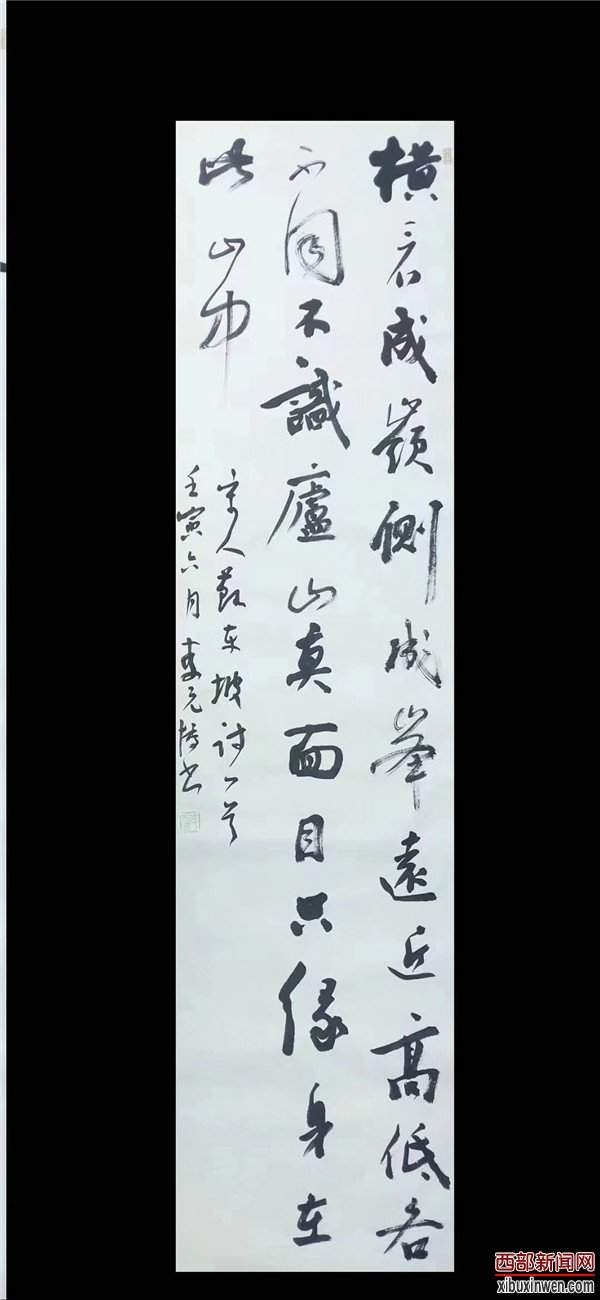 橫看成嶺側成峯遠近高低各
不同不識廬山真面目只緣身在
此山中
宋人蘇东坡诗一首
壬寅六月李元书
西部新闻网
xibuxinwen.com